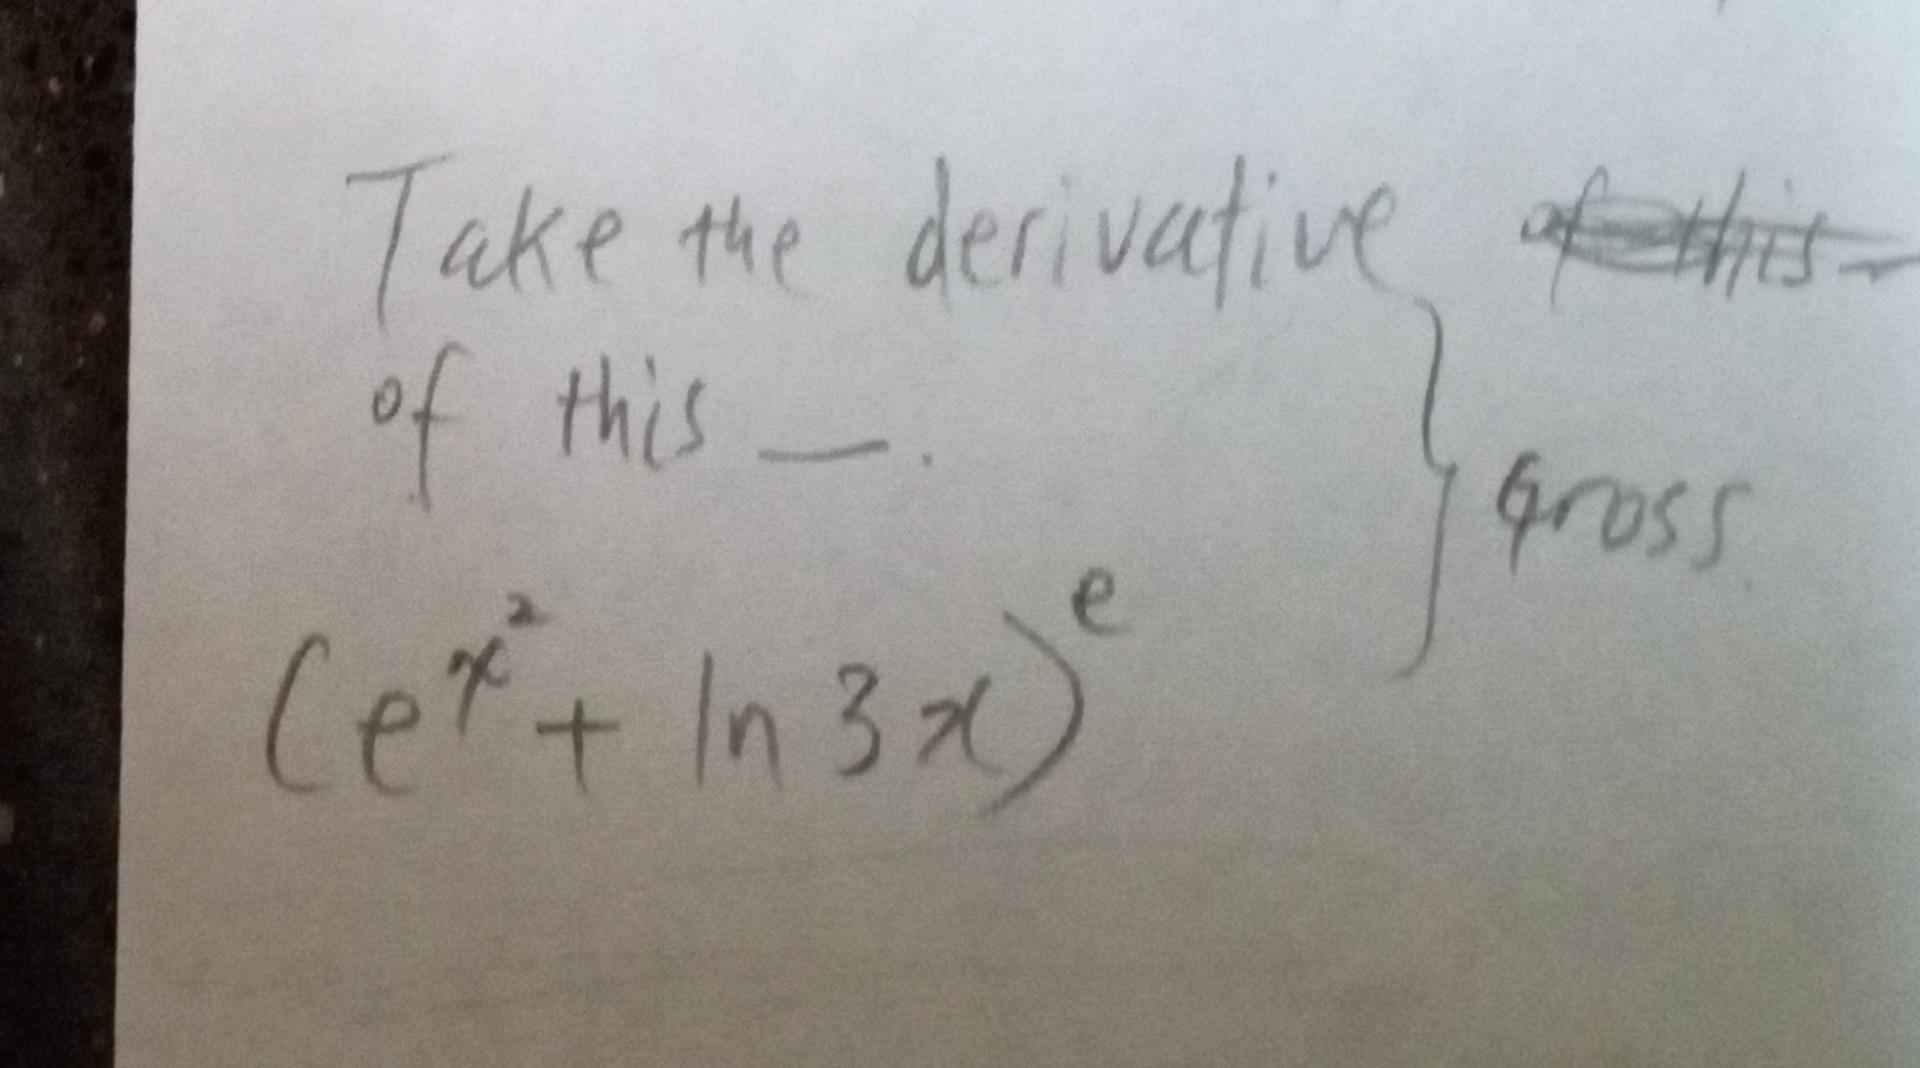 Take the derivative of this
of this _.
Gross
(e^x^2 + ln 3x)^e